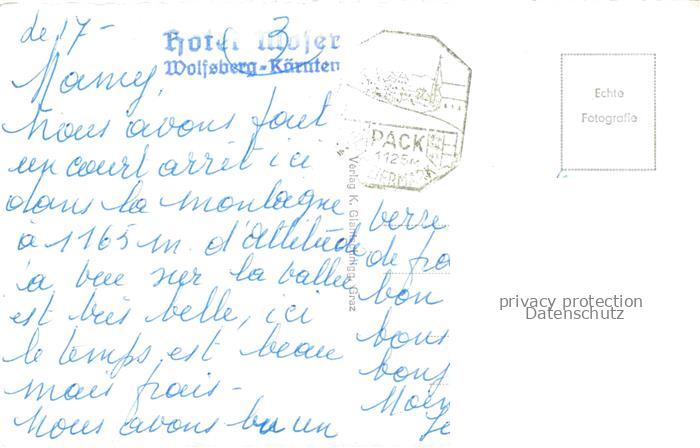 de 17-
Hotel Moser
Wolfsberg-Kärnten
3
Mamy,
Nous avons fait
un court arrêt ici
dans la montagne
à 1165 m. d'altitude
la vue sur la vallée
est très belle, ici
le temps est beau
mais frais-
Nous avons bu un
verre
de
bon
bons
bons
PACK
1125m
Verlag K. Graz
Echte
Fotografie
privacy protection
Datenschutz